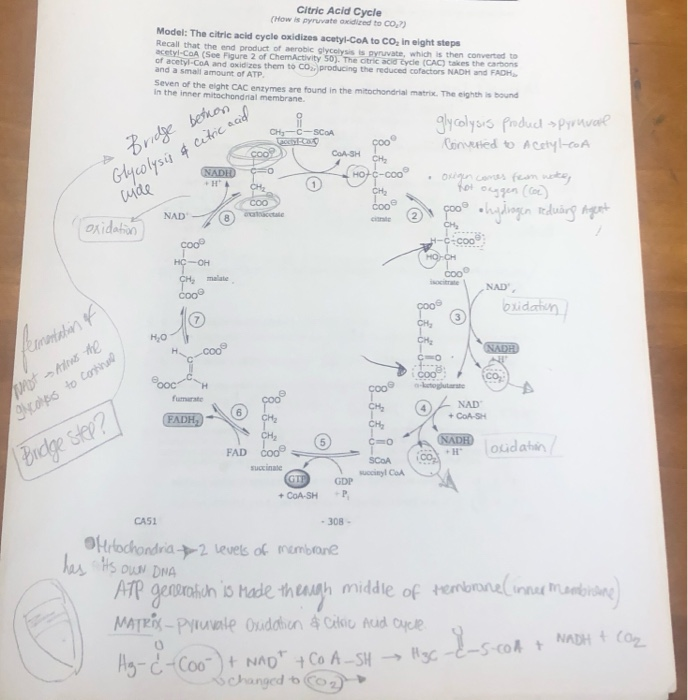 Citric Acid Cycle
(How is pyruvate oxidized to CO₂?)
Model: The citric acid cycle oxidizes acetyl-CoA to CO₂ in eight steps
Recall that the end product of aerobic glycolysis is pyruvate, which is then converted to
acetyl-CoA (See Figure 2 of ChemActivity 50). The citric acid cycle (CAC) takes the carbons
of acetyl-CoA and oxidizes them to CO₂, producing the reduced cofactors NADH and FADH₂
and a small amount of ATP.
Seven of the eight CAC enzymes are found in the mitochondrial matrix. The eighth is bound
in the inner mitochondrial membrane.
Bridge between
Glycolysis & citric acid
cycle
glycolysis product → pyruvate
Converted to Acetyl-CoA
O
CH₃–C–SCoA
(acetyl-CoA)
CoA-SH
COO⊖
C=O
CH₂
COO
oxaloacetate
NADH
+ H⁺
NAD⁺
8
1
COO⊖
CH₂
HO–C–COO⊖
CH₂
COO⊖
citrate
2
• oxygen comes from water,
not oxygen
• hydrogen reducing Agent
oxidation
COO⊖
CH₂
H–C–COO⊖
HO–CH
COO⊖
isocitrate
NAD⁺
3
oxidation
NADH
+ H⁺
CO₂
COO⊖
HC–OH
CH₂
COO⊖
malate
7
H₂O
H COO⊖
C
C
⊖OOC H
fumarate
COO⊖
CH₂
CH₂
C=O
COO⊖
α-ketoglutarate
4
NAD⁺
+ CoA-SH
NADH
+ H⁺
CO₂
oxidation
COO⊖
CH₂
CH₂
C=O
SCoA
succinyl CoA
5
GDP
+ Pᵢ
GTP
+ CoA-SH
COO⊖
CH₂
CH₂
COO⊖
succinate
6
FADH₂
FAD
fermentation of
NAD⁺ → Allows the
glycolysis to continue
Bridge step?
CA51
- 308 -
Mitochondria → 2 levels of membrane
has its own DNA
ATP generation is made through middle of membrane (inner membrane)
MATRIX – pyruvate Oxidation & Citric Acid Cycle
H₃-C-(COO⁻) + NAD⁺ + CoA-SH → H₃C-C-S-COA + NADH + CO₂
changed to CO₂